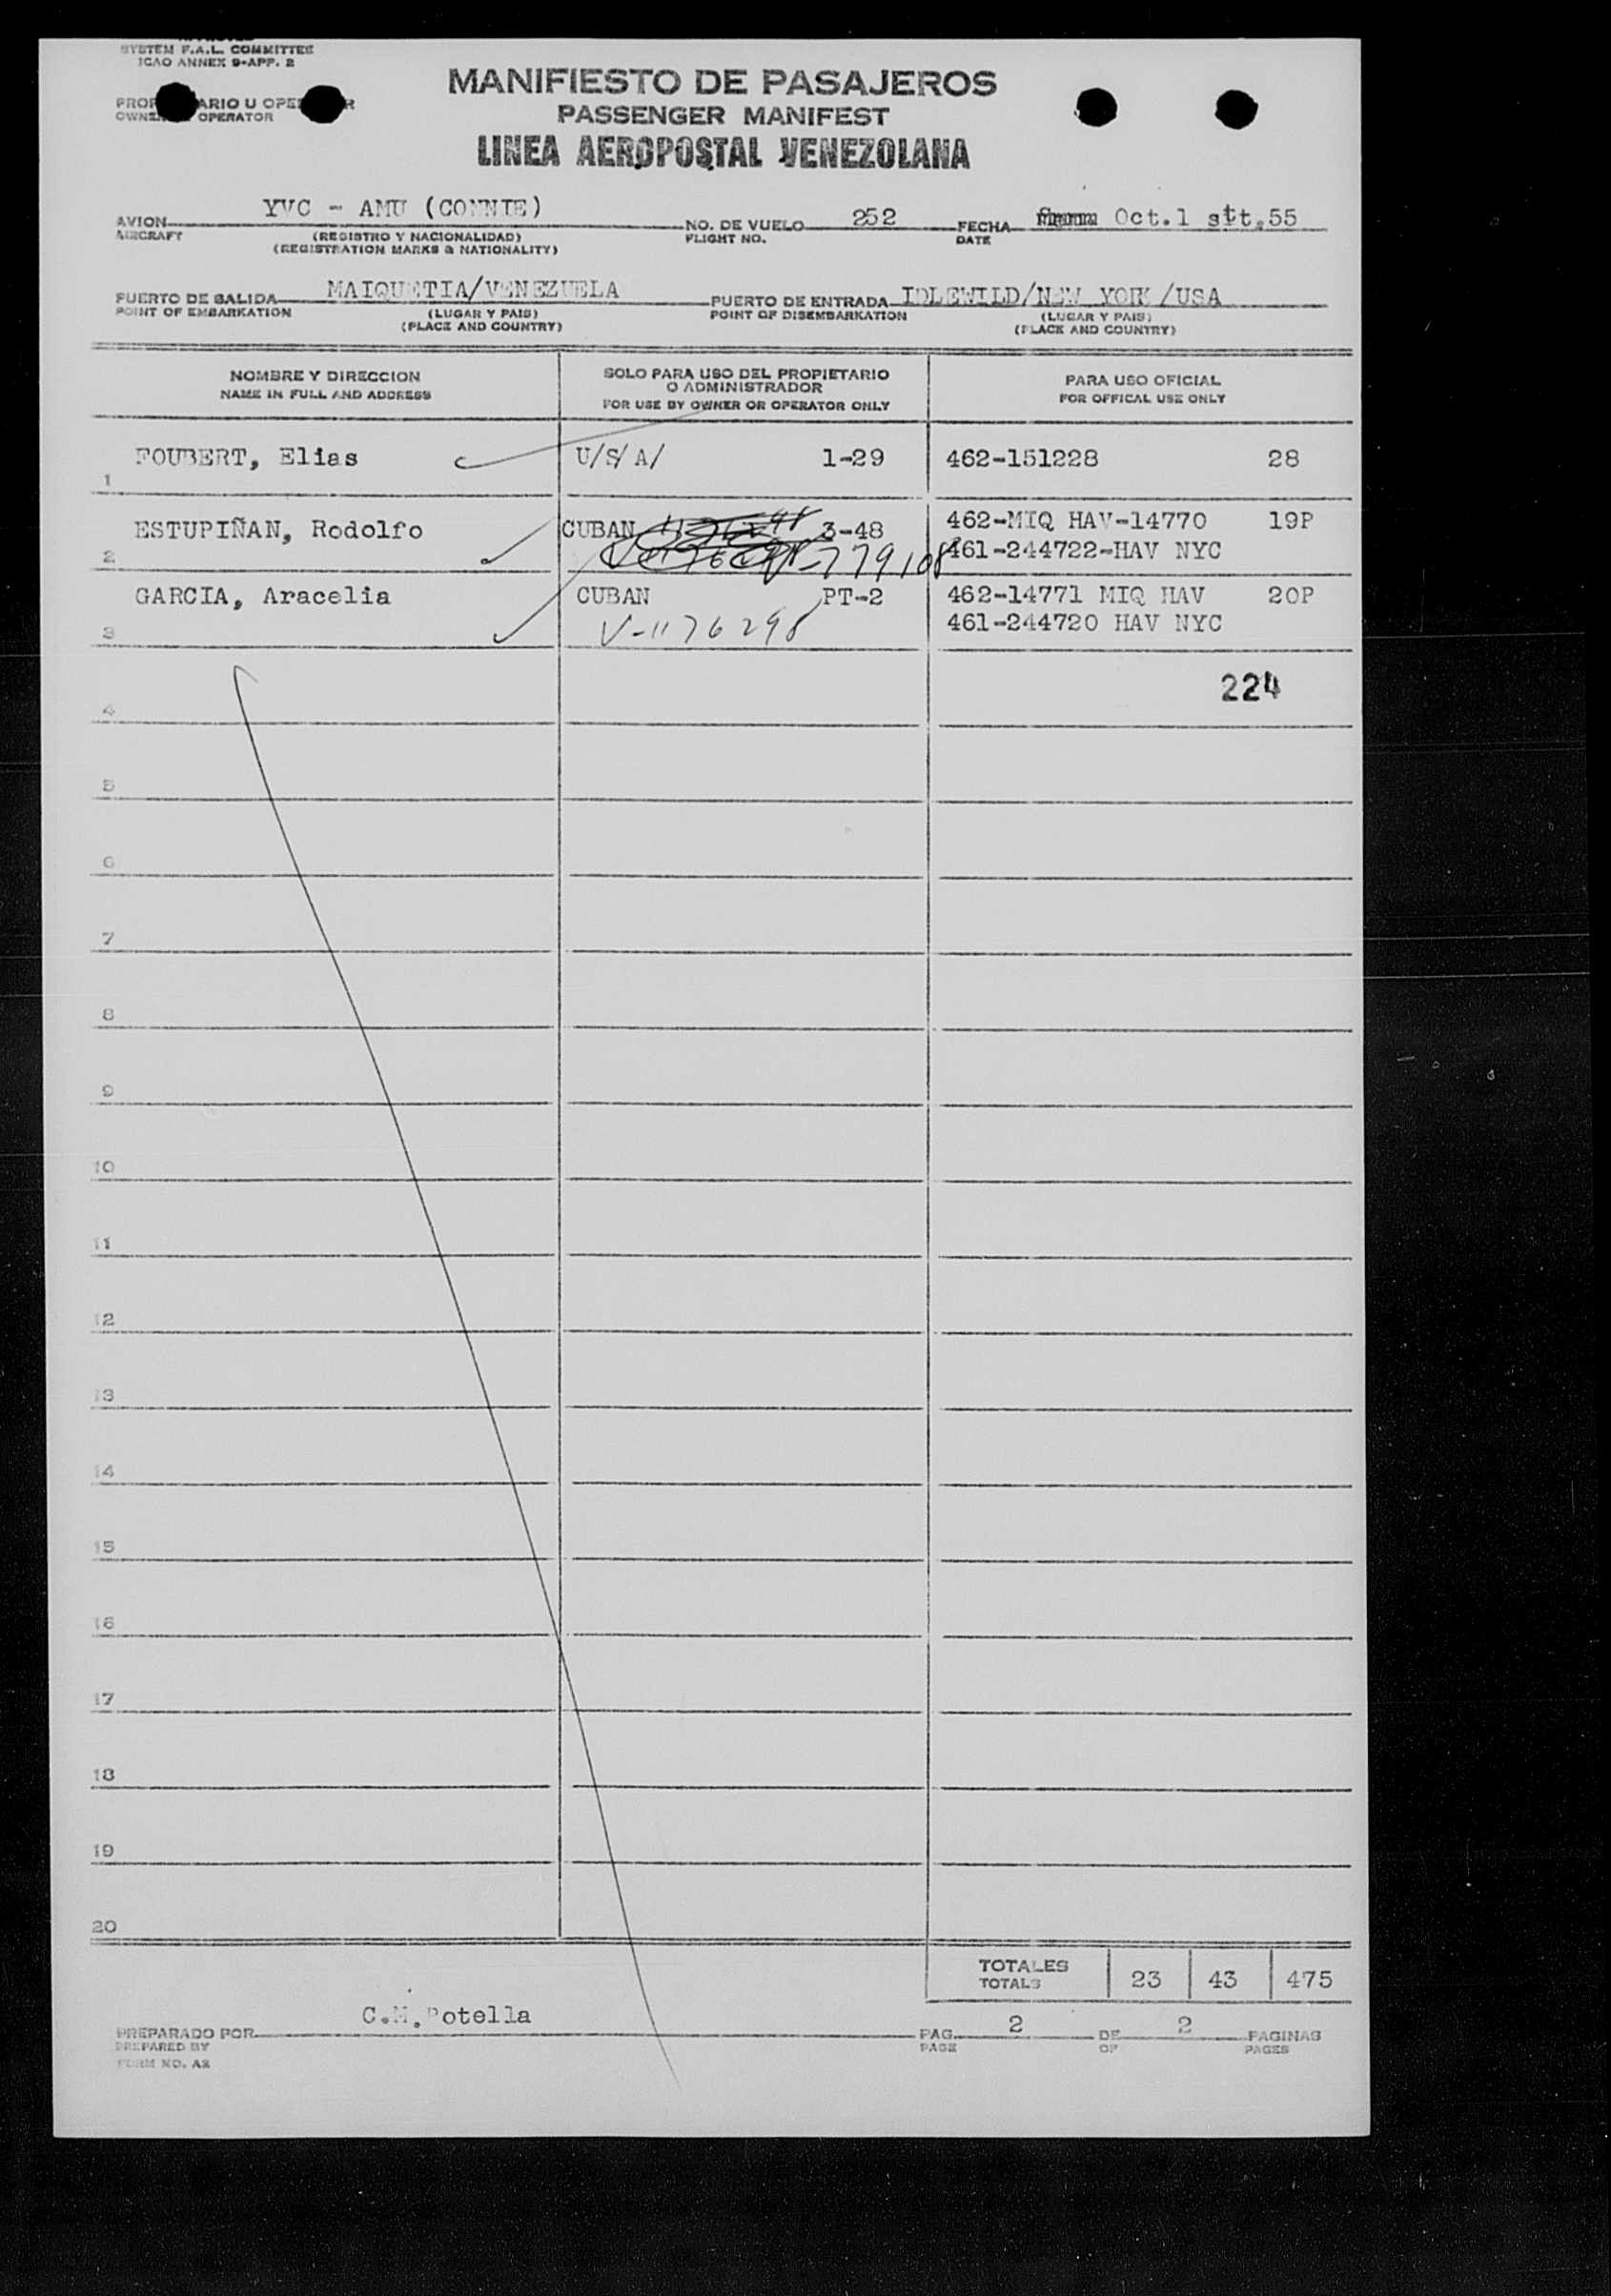 SYSTEM F.A.L. COMMITTEE
ICAO ANNEX 9-APP. 2
MANIFIESTO DE PASAJEROS
PASSENGER MANIFEST
OPERATOR
LINEA AEROPOSTAL VENEZOLANA
AVION YVC - AMU (CONNIE) NO. DE VUELO 252 FECHA Oct.1 stt.55
AIRCRAFT (REGISTRO Y NACIONALIDAD) FLIGHT NO. DATE
(REGISTRATION MARKS & NATIONALITY)
PUERTO DE SALIDA MAIQUETIA/VENEZUELA PUERTO DE ENTRADA IDLEWILD/NEW YORK/USA
POINT OF EMBARKATION (LUGAR Y PAIS) POINT OF DISEMBARKATION (LUGAR Y PAIS)
(PLACE AND COUNTRY) (PLACE AND COUNTRY)
NOMBRE Y DIRECCION SOLO PARA USO DEL PROPIETARIO PARA USO OFICIAL
O ADMINISTRADOR
NAME IN FULL AND ADDRESS FOR USE BY OWNER OR OPERATOR ONLY FOR OFFICAL USE ONLY
1 FOUBERT, Elias U/S/A/ 1-29 462-151228 28
2 ESTUPIÑAN, Rodolfo CUBAN 3-48 462-MIQ HAV-14770 19P
779108 461-244722-HAV NYC
3 GARCIA, Aracelia CUBAN PT-2 462-14771 MIQ HAV 20P
V-1176298 461-244720 HAV NYC
224
4
5
6
7
8
9
10
11
12
13
14
15
16
17
18
19
20
TOTALES 23 43 475
TOTALS
PREPARADO POR C.M.Potella PAG. 2 DE 2 PAGINAS
PREPARED BY PAGE OF PAGES
FORM NO. A2